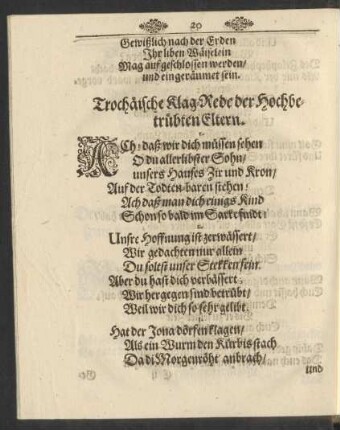 20
Gewißlich nach der Erden
Ihr liben Wäiselein
Mag aufgeschlossen werden/
und eingeräumet sein.
Trochäische Klag-Rede der Hochbe-
trübten Eltern.
ACh, daß wir dich müssen sehen
O du allerlibster Sohn/
unsers Hauses Zir und Kron/
Auf der Todten-baren stehen!
Ach daß man dich einigs Kind
Schon so bald im Sarke findt!
Unsre Hoffnung ist zerwässert/
Wir gedachten nur allein
Du soltst unser Stekken sein.
Aber du hast dich verbässert,
Wir hergegen sind betrübt/
Weil wir dich so sehr gelibt.
Hat der Jona dörfen klagen/
Als ein Wurm den Kürbis stach
Da di Morgenröht anbrach/
und